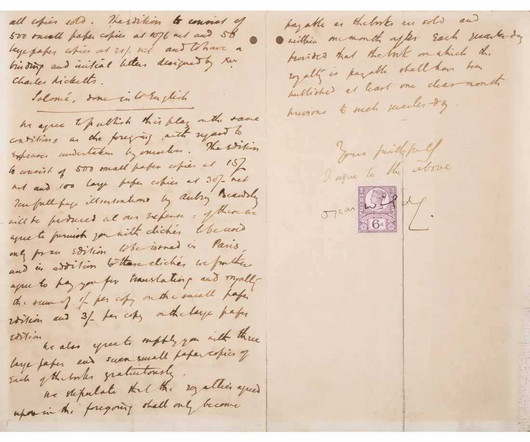 all copies sold. The edition to consist of
500 small paper copies at 10/6 net and 50
large paper copies at 21/- net and to have a
binding and initial letters designed by Mr.
Charles Ricketts.
Salomé, done into English
We agree to publish this play on the same
conditions as the foregoing with regard to
expenses undertaken by ourselves. The edition
to consist of 500 small paper copies at 15/-
net and 100 large paper copies at 30/- net
Ten full page illustrations by Aubrey Beardsley
will be produced at our expense, of these we
agree to furnish you with clichés to be used
only for an edition to be issued in Paris,
and in addition to these clichés we further
agree to pay you for translating and royalty
the sum of 1/- per copy on the small paper
edition and 3/- per copy on the large paper
edition
We also agree to supply you with three
large paper and seven small paper copies of
each of the books gratuitously.
We stipulate that the royalties agreed
upon in the foregoing shall only become
payable as the books are sold and
within one month after each quarter-day
provided that the book on which the
royalty is payable shall have been
published at least one clear month
previous to such quarter-day
Yours faithfully
I agree to the above
Oscar Wilde
6D